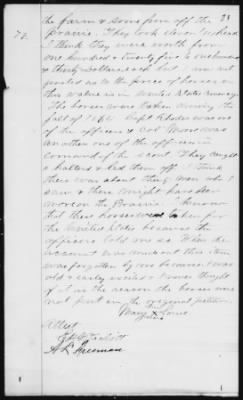 73
72
the farm & some from off the
prairie. They took eleven head
I think they were worth from
one hundred & twenty five to one hundred
& thirty dollars each but I am not
posted as to the price of horses or
their value in United States money
The horses were taken during the
fall of 1864 Capt Rhodes was one
of the officers & Col Moss was
another one of the officers in
command of the scout. They caught
& haltered & led them off. I think
there was about thirty men who I
saw & there might have been
more on the Prairie. I know
that these horses were taken for
the United States because the
officers told me so. When the
account was made out this item
was forgotten by me because I was
old & early with & never thought
of it is the reason the horses were
not put in the original petition.
Mary Love
Attest
A R Freeman